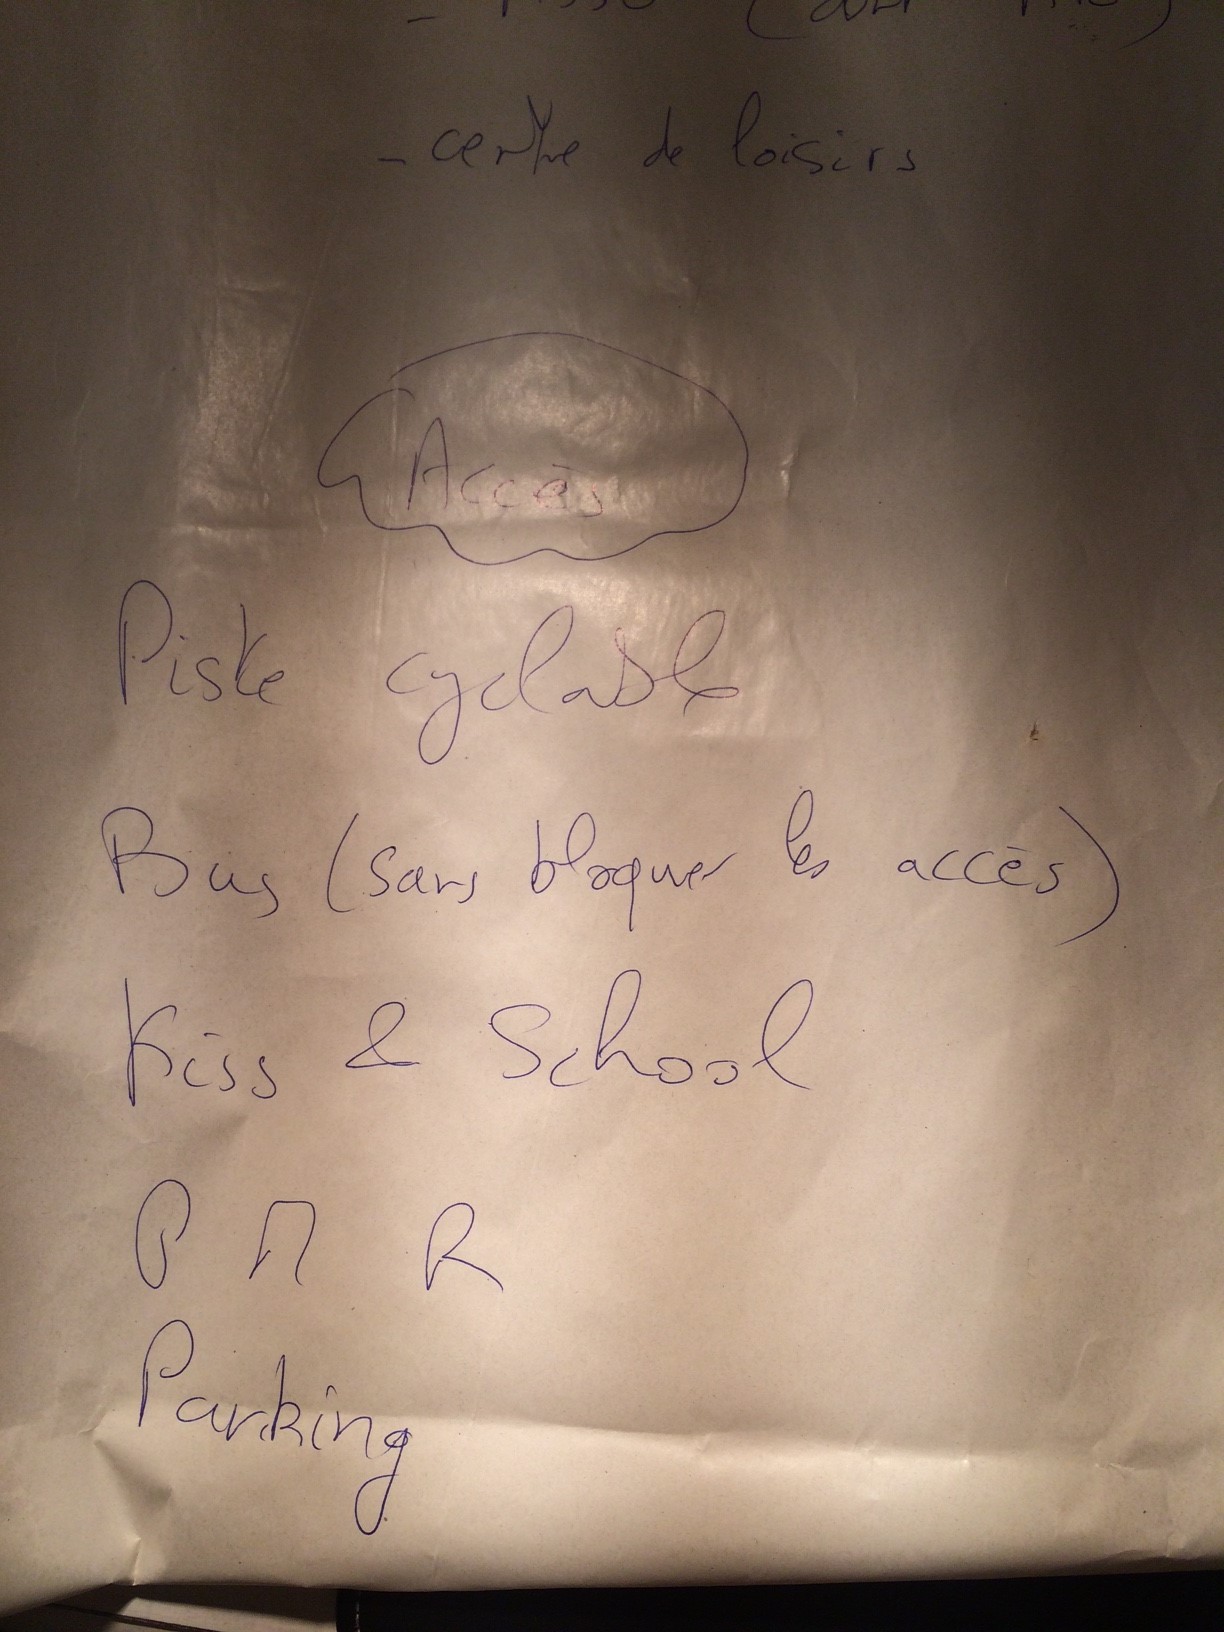 - centre de loisirs
Accès
Piste cyclable
Bus (sans bloquer les accès)
Kiss & School
P M R
Parking